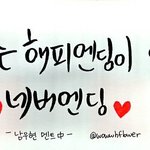 는 해피엔딩이
네버엔딩
- 남우현 멘트 中 - @woowhflower